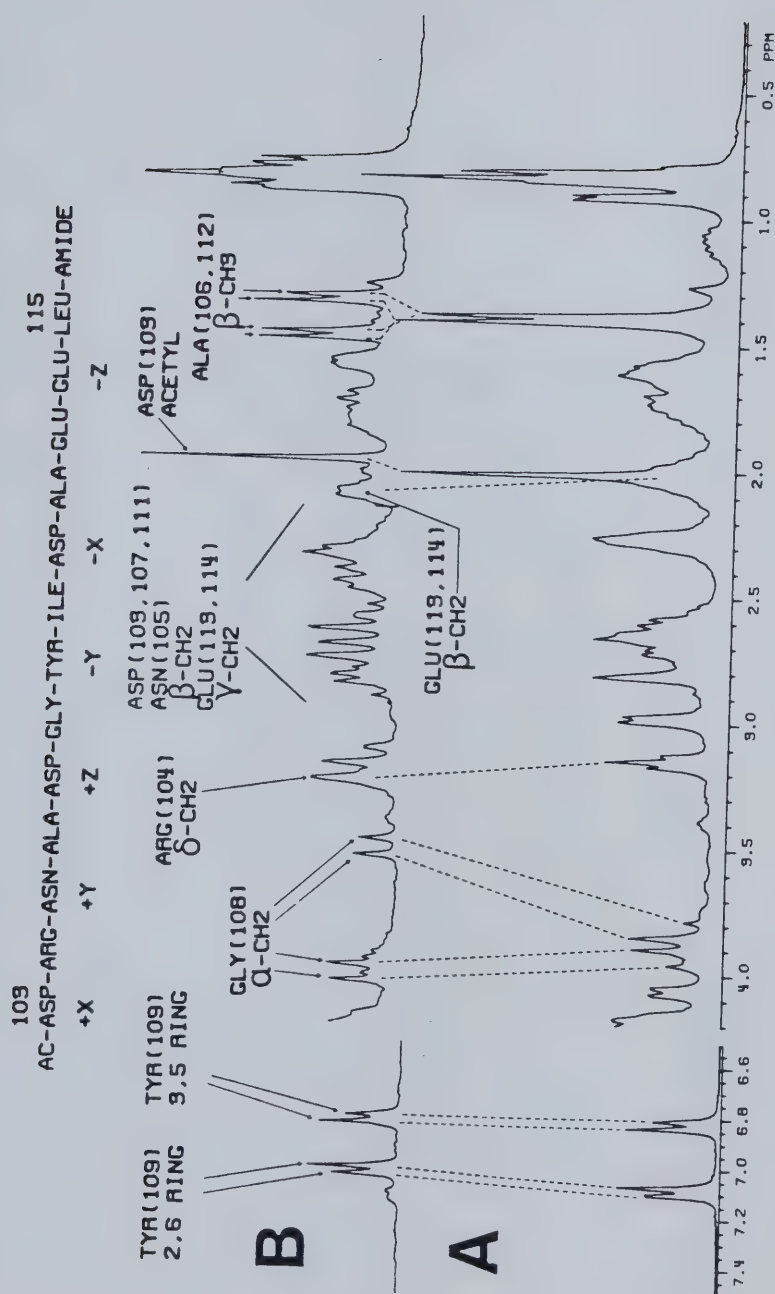 103 115
AC-ASP-ARG-ASN-ALA-ASP-GLY-TYR-ILE-ASP-ALA-GLU-GLU-LEU-AMIDE
+X +Y +Z -Y -X -Z
TYR(109)
2,6 RING
TYR(109)
3,5 RING
GLY(108)
α-CH2
ARG(104)
δ-CH2
ASP(103,107,111)
ASN(105)
β-CH2
GLU(113,114)
γ-CH2
ASP(103)
ACETYL
ALA(106,112)
β-CH3
B
GLU(113,114)
β-CH2
A
7.4 7.2 7.0 6.8 6.6 4.0 3.5 3.0 2.5 2.0 1.5 1.0 0.5 PPM